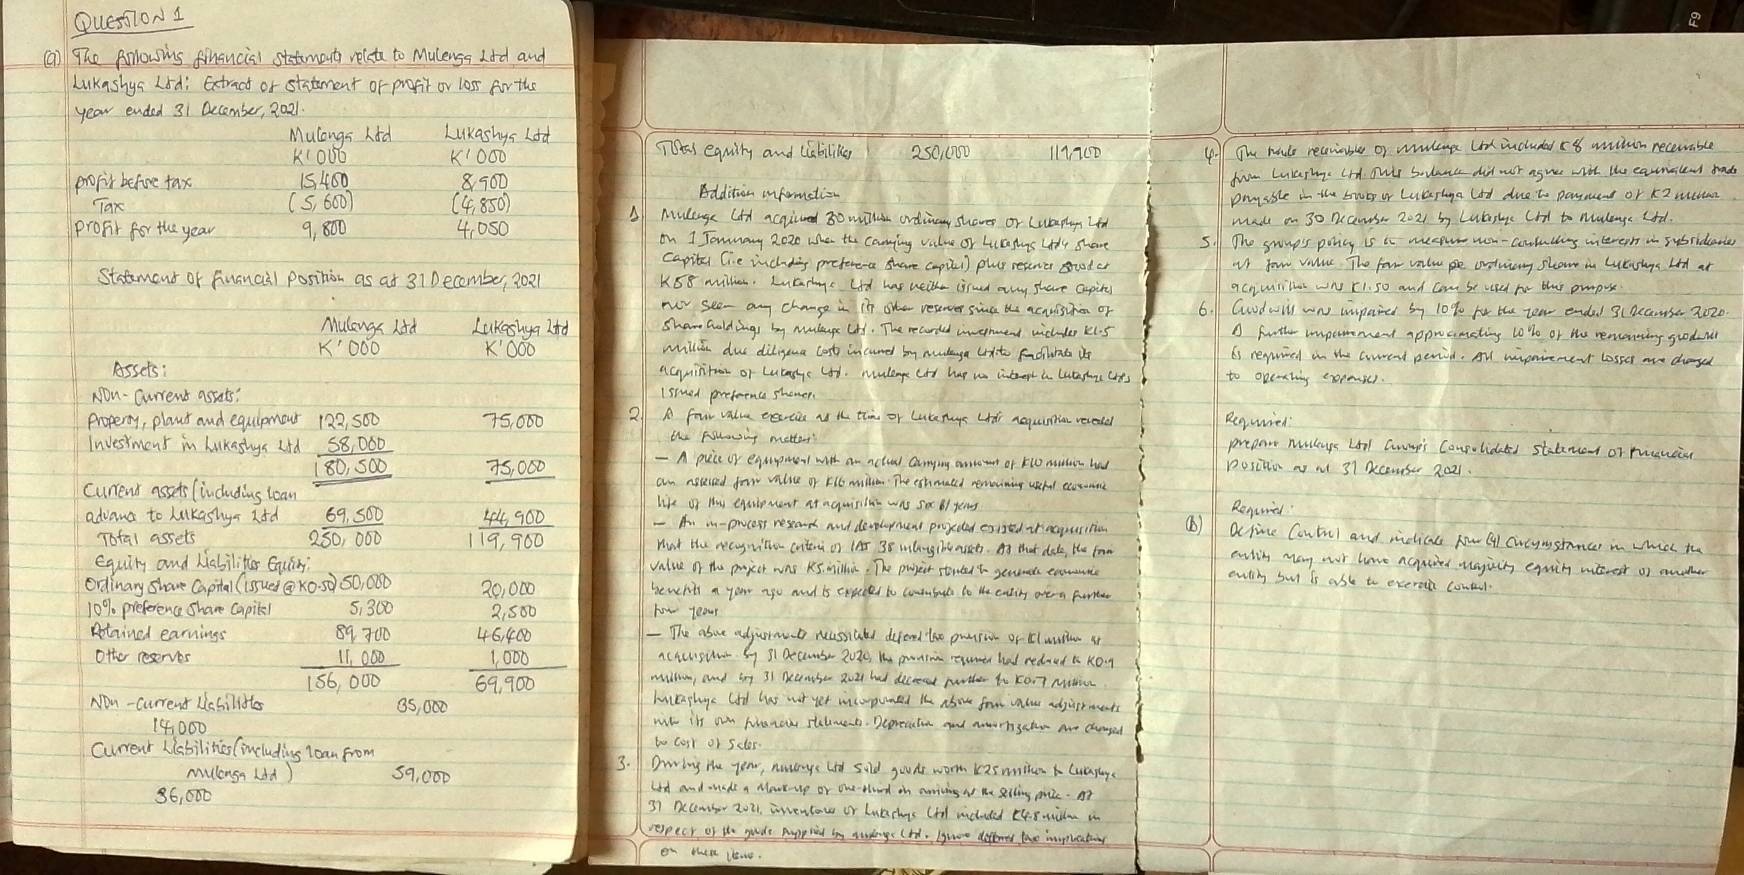 QUESTION 1
(a) The following financial statements relate to Mulenga Ltd and
Lukashya Ltd: Extract of statement of profit or loss for the
year ended 31 December, 2021.
Mulenga Ltd Lukashya Ltd
K'000 K'000
profit before tax 15,400 8,900
Tax (5,600) (4,850)
profit for the year 9,800 4,050
Statement of financial position as at 31 December, 2021
Mulenga Ltd Lukashya Ltd
K'000 K'000
Assets:
Non-current assets:
Property, plant and equipment 122,500 75,000
Investment in Lukashya Ltd 58,000
180,500 75,000
Current assets (including loan
advance to Lukashya Ltd 69,500 44,900
Total assets 250,000 119,900
Equity and Liabilities Equity:
Ordinary share capital (issued @ K0.50) 50,000 20,000
10% preference share capital 5,300 2,500
Retained earnings 89,700 46,400
Other reserves 11,000 1,000
156,000 69,900
Non-current Liabilities 35,000
14,000
Current Liabilities (including loan from
Mulenga Ltd) 59,000
36,000
Total equity and liabilities 250,000 119,900
Addition information
1 Mulenga Ltd acquired 30 million ordinary shares of Lukashya Ltd
on 1 January 2020 when the carrying value of Lukashya Ltd's share
capital (i.e including preference share capital) plus reserves stood at
K58 million. Lukashya Ltd has neither issued any share capital
nor seen any change in its other reserves since the acquisition of
shareholdings by Mulenga Ltd. The recorded investment includes K1.5
million due diligence costs incurred by mulenga Ltd to facilitate its
acquisition of Lukashya Ltd. mulenga Ltd has no interest in Lukashya Ltd's
issued preference shares.
2. A fair value exercise at the time of Lukashya Ltd's acquisition revealed
the following matters:
- A piece of equipment with an actual carrying amount of K10 million had
an assessed fair value of K16 million. The estimated remaining useful economic
life of this equipment at acquisition was six 6) years.
- An in-process research and development projected existed at acquisition
that the recognition criteria of IAS 38 intangible assets. At that date, the fair
value of the project was K5 million. The project started to generate economic
benefits a year ago and is expected to contribute to the entity over a further
four years
- The above adjustments necessitated deferred tax provision of K1 million at
acquisition. By 31 December 2020, the provision required had reduced to K0.9
million, and by 31 December 2021 had decreased further to K0.7 million.
Lukashya Ltd has not yet incorporated the above fair value adjustments
into its own financial statements. Depreciation and amortization are charged
to cost of sales.
3. During the year, mulenga Ltd sold goods worth K25 million to Lukashya
Ltd and made a mark-up of one-third on arriving at the selling price. At
31 December 2021, inventories of Lukashya Ltd included K4.8 million in
respect of the goods supplied by mulenga Ltd. Ignore deffered tax implications
on these items.
4. The trade receivables of mulenga Ltd included K8 million receivable
from Lukashya Ltd. This balance did not agree with the equivalent trade
payable in the books of Lukashya Ltd due to payment of K2 million
made on 30 December 2021 by Lukashya Ltd to Mulenga Ltd.
5. The group's policy is to measure non-controlling interests in subsidiaries
at fair value. The fair value per ordinary share in Lukashya Ltd at
acquisition was K1.50 and can be used for this purpose.
6. Goodwill was impaired by 10% for the year ended 31 December 2020.
A further impairment approximating 10% of the remaining goodwill
is required in the current period. All impairment losses are charged
to operating expenses.
Required:
prepare mulenga Ltd Group's Consolidated statement of financial
position as at 31 December 2021.
Required:
(B) Define Control and indicate four (4) circumstances in which the
entity may not have acquired majority equity interest of another
entity but is able to exercise control.
F9